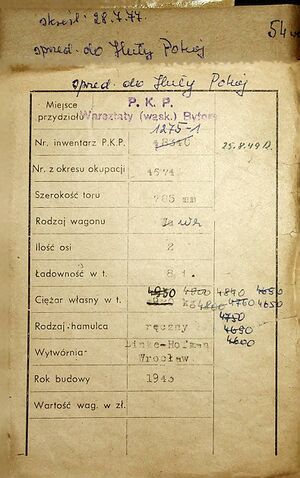 skreśl. 28.7.77.
sprzed. do Huty Pokój
54
sprzed. do Huty Pokój
Miejsce przydziału
P. K. P.
Warsztaty (wąsk.) Bytom
1275-1
Nr. inwentarz P.K.P.
25.8.49 r.
Nr. z okresu okupacji 4574
Szerokość toru 785 mm
Rodzaj wagonu Wk
Ilość osi 2
Ładowność w t. 8 t.
4950 4800 4840 4650
Ciężar własny w t. 4800 4760 4650
4750
Rodzaj hamulca ręczny 4690
4600
Wytwórnia Linke-Hofman
Wrocław
Rok budowy 1943
Wartość wag. w zł.